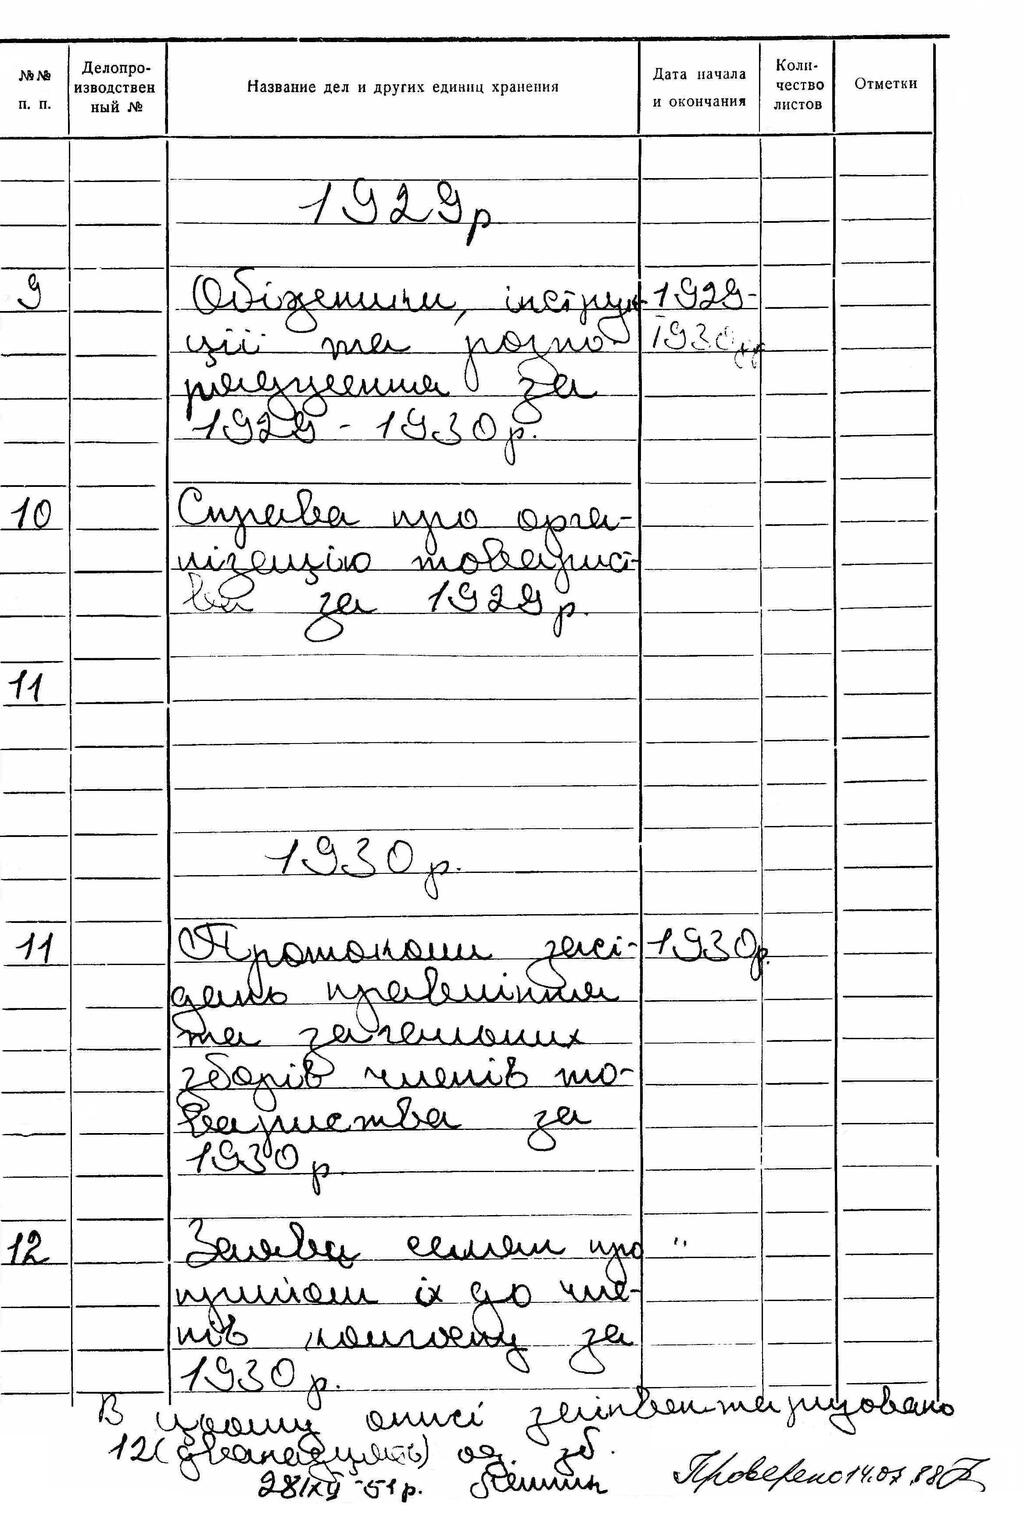 №№ п. п.
Делопро-
изводствен
ный №
Название дел и других единиц хранения
Дата начала
и окончания
Коли-
чество
листов
Отметки
1929р
9 Обіжники, інструк- 1929-
ції та розпо- 1930рр
рядження за
1929-1930р.
10 Справа про орга-
нізацію товарист-
ва за 1929р.
11
1930р.
11 Протоколи засі- 1930р.
дань правління
та загальних
зборів членів то-
вариства за
1930р.
12 Заява селян про "
прийом їх до чле-
нів колгоспу за
1930р.
В цьому описі заінвентаризовано
12(дванадцять) од. зб.
28/XII-51р.
Проверено 14.07.88